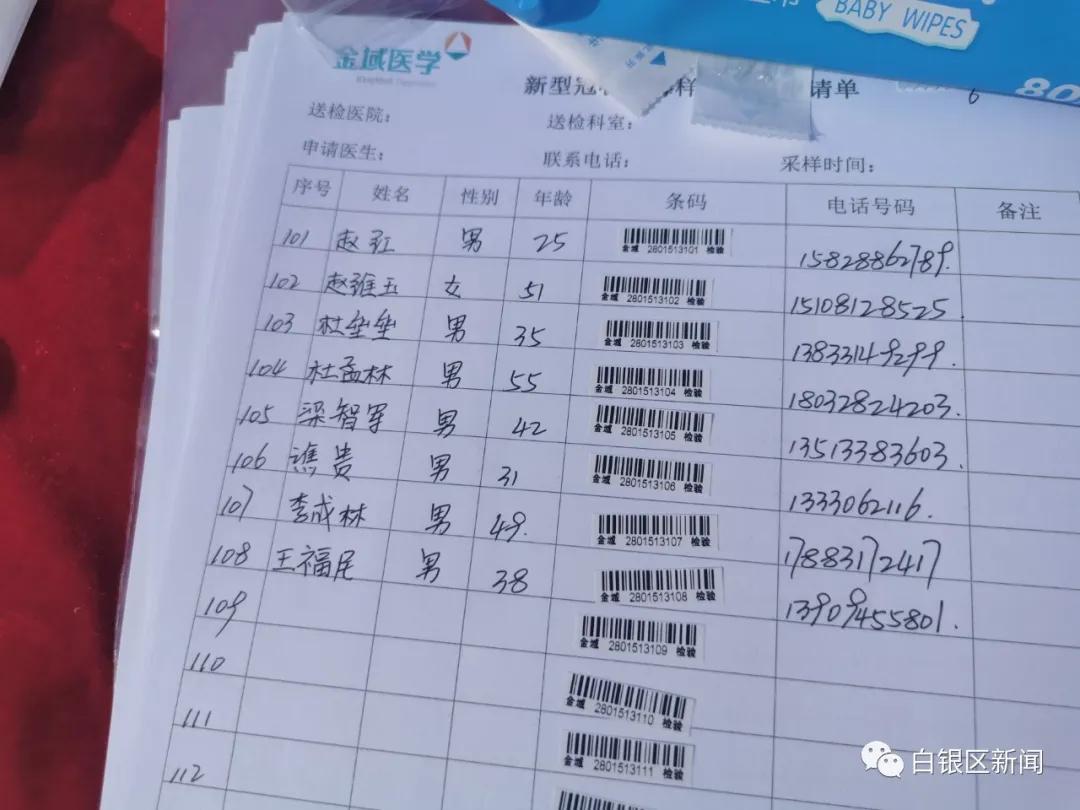 BABY WIPES
80
金域医学
新型冠 样 请单
6
送检医院： 送检科室：
申请医生： 联系电话： 采样时间：
序号 姓名 性别 年龄 条码 电话号码 备注
101 赵红 男 25 金域 2801513101 检验 15828862789.
102 赵维玉 女 51 金域 2801513102 检验 15108128525.
103 杜垒垒 男 35 金域 2801513103 检验 13833149299.
104 杜孟林 男 55 金域 2801513104 检验 18032824203.
105 梁智军 男 42 金域 2801513105 检验 13513383603.
106 谯贵 男 31 金域 2801513106 检验 1333062116.
107 李成林 男 49. 金域 2801513107 检验 17883172417
108 王福尾 男 38 金域 2801513108 检验 13909455801.
109 金域 2801513109 检验
110 金域 2801513110 检验
111 金域 2801513111 检验
112
白银区新闻